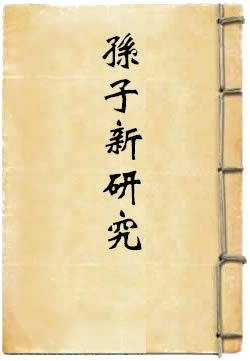 孫子新研究